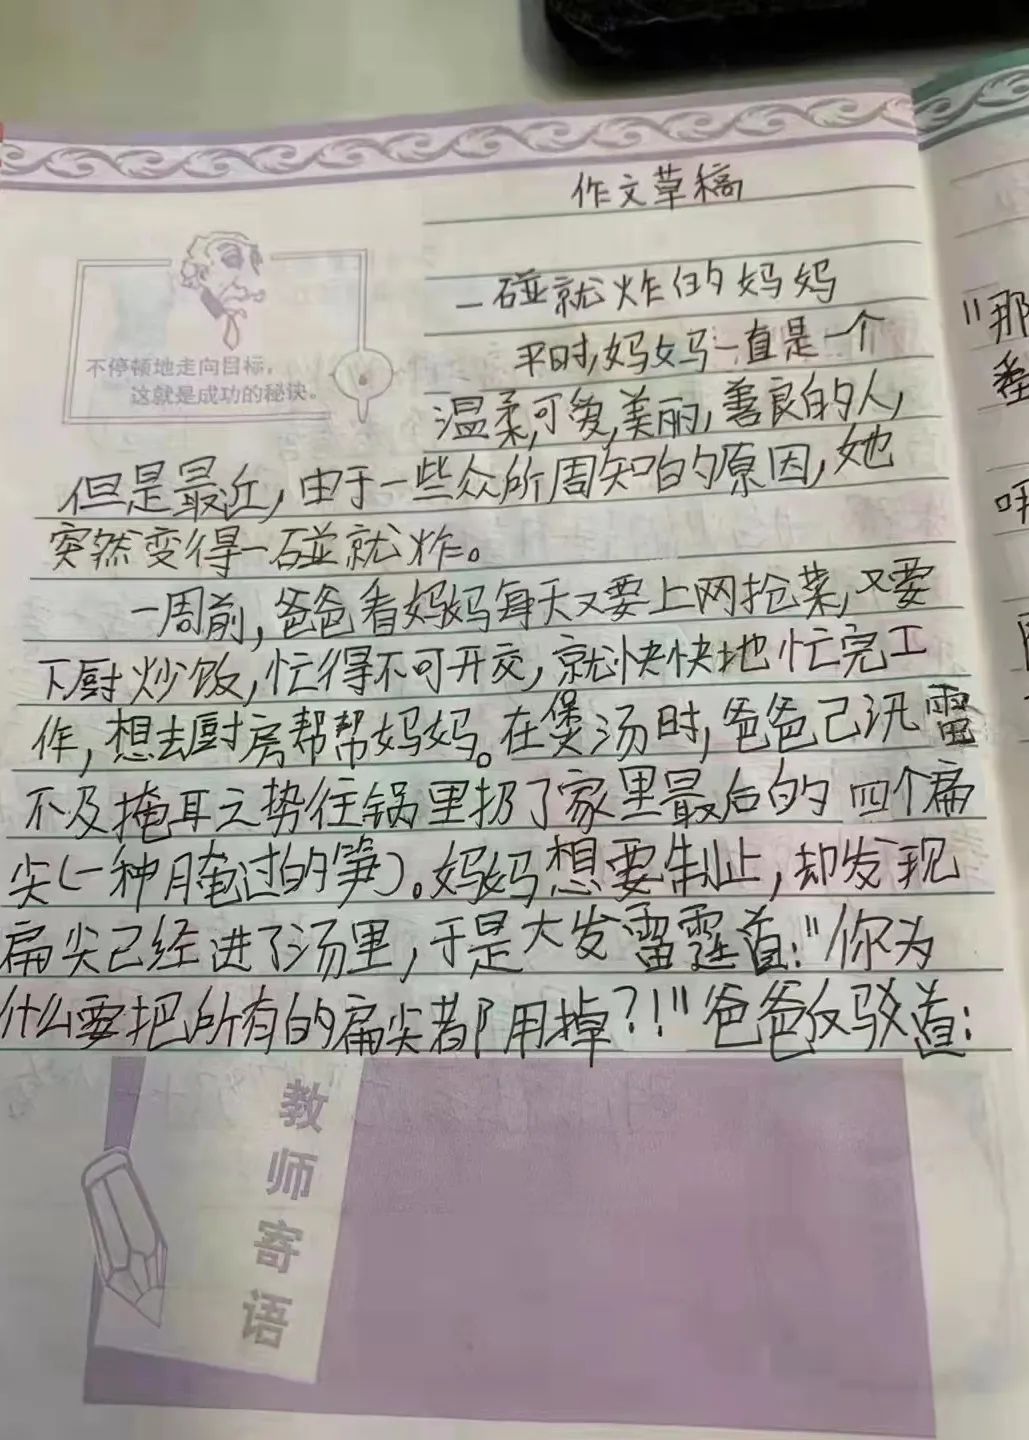 作文草稿
一碰就炸的妈妈
平时,妈妈一直是一个
不停顿地走向目标,
这就是成功的秘诀。
温柔,可爱,美丽,善良的人,
但是最近,由于一些众所周知的原因,她
突然变得一碰就炸。
一周前,爸爸看妈妈每天又要上网抢菜,又要
下厨炒饭,忙得不可开交,就快快地忙完工
作,想去厨房帮帮妈妈。在煲汤时,爸爸已汛雷
不及掩耳之势往锅里扔了家里最后的四个扁
尖(一种腌过的笋)。妈妈想要制止,却发现
扁尖已经进了汤里,于是大发雷霆道:"你为
什么要把所有的扁尖都用掉?!"爸爸反驳道:
"那
教师寄语